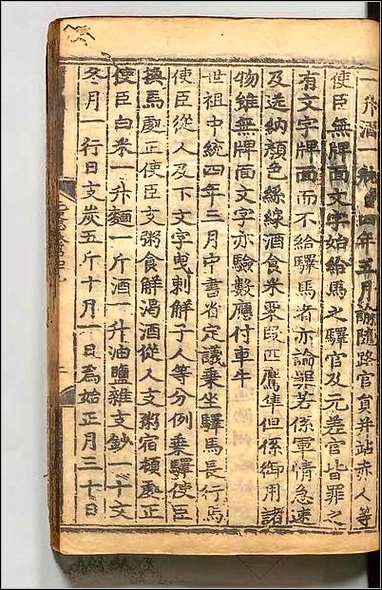 一升酒一瓶自四年五月諭隨路官員并站赤人等
使臣無牌面文字始給馬之驛官及元差官皆罪之
有文字牌面而不給驛馬者亦論罪若係軍情急速
及送納顏色絲線酒食米粟段匹鷹隼但係御用諸
物雖無牌面文字亦驗數應付車牛
世祖中統四年三月中書省定議乘坐驛馬長行馬
使臣從人及下文字曳剌解子人等分例乘驛使臣
換馬處正使臣支粥食解渴酒從人支粥宿頓處正
使臣白米一升麵一斤酒一升油鹽雜支鈔一十文
冬月一行日支炭五斤十月一日為始正月三十日